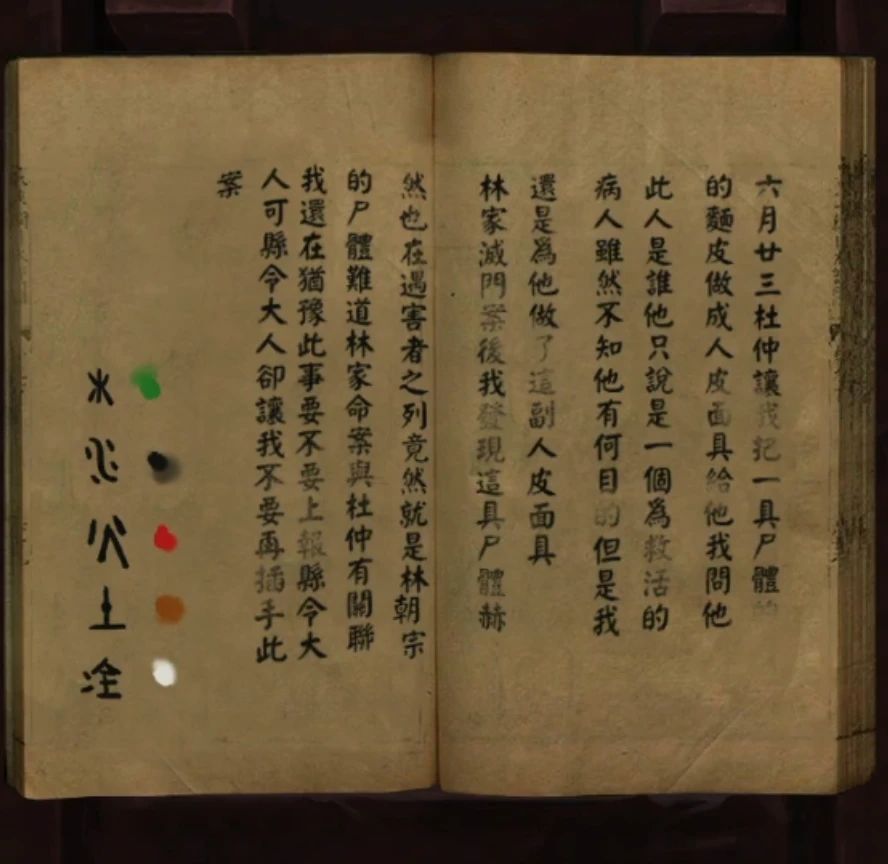 六月廿三杜仲讓我把一具尸體的
的麵皮做成人皮面具給他我問他
此人是誰他只說是一個為救活的
病人雖然不知他有何目的但是我
還是為他做了這副人皮面具
林家滅門案後我發現這具尸體赫
然也在遇害者之列竟然就是林朝宗
的尸體難道林家命案與杜仲有關聯
我還在猶豫此事要不要上報縣令大
人可縣令大人卻讓我不要再插手此
案
木
水
火
土
金